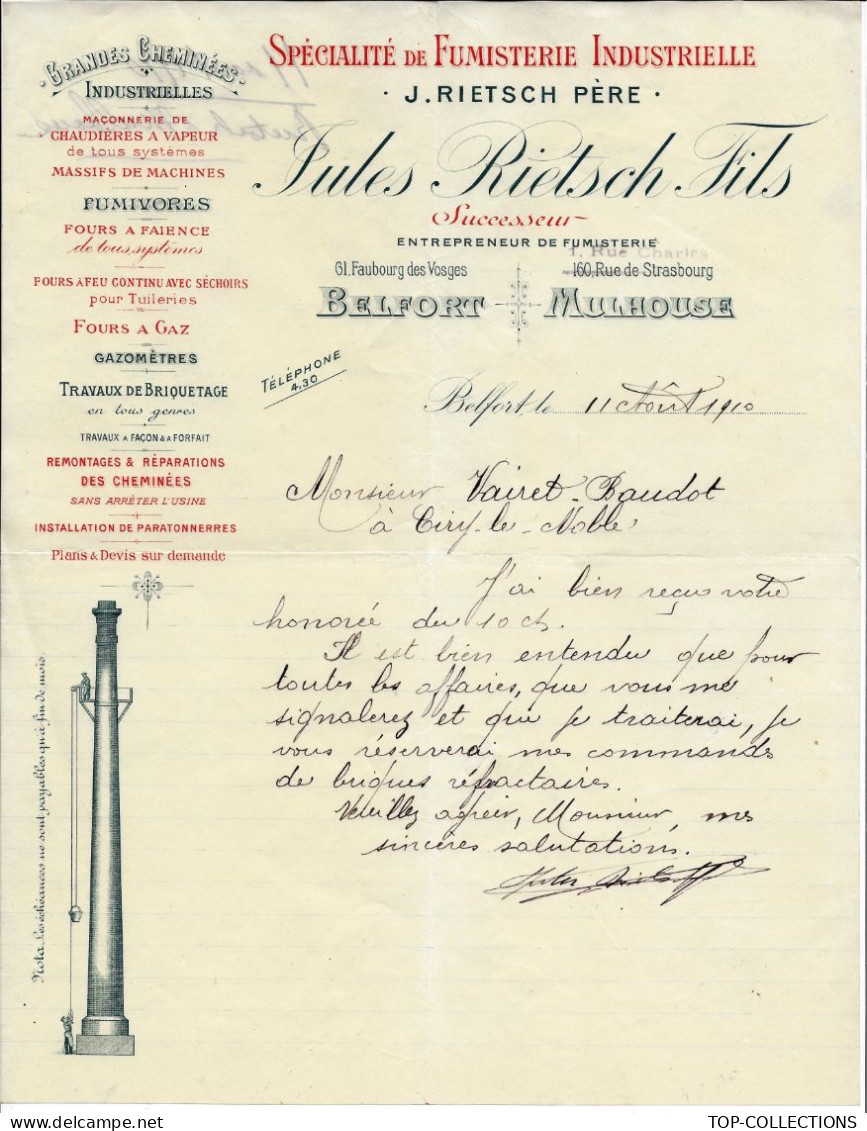 GRANDES CHEMINÉES
INDUSTRIELLES
MAÇONNERIE DE
CHAUDIÈRES A VAPEUR
de tous systèmes
MASSIFS DE MACHINES
FUMIVORES
FOURS A FAIENCE
de tous systèmes
FOURS À FEU CONTINU AVEC SÉCHOIRS
pour Tuileries
FOURS A GAZ
GAZOMÈTRES
TRAVAUX DE BRIQUETAGE
en tous genres
TRAVAUX A FAÇON & A FORFAIT
REMONTAGES & RÉPARATIONS
DES CHEMINÉES
SANS ARRÊTER L'USINE
INSTALLATION DE PARATONNERRES
Plans & Devis sur demande
Nota. Les échéances ne sont payables qu'à fin de mois.
SPÉCIALITÉ DE FUMISTERIE INDUSTRIELLE
· J. RIETSCH PÈRE ·
Jules Rietsch Fils
Successeur
ENTREPRENEUR DE FUMISTERIE
1, Rue Charles
61, Faubourg des Vosges
160, Rue de Strasbourg
BELFORT
MULHOUSE
TÉLÉPHONE
4.30
Belfort, le 11 Août 1910
Monsieur Vairet-Baudot
à Ciry-le-Noble
J'ai bien reçu votre
honorée du 10 ct.
Il est bien entendu que pour
toutes les affaires, que vous me
signalerez et que je traiterai, je
vous réserverai mes commandes
de briques réfractaires.
Veuillez agréer, Monsieur, mes
sincères salutations.
TOP-COLLECTIONS